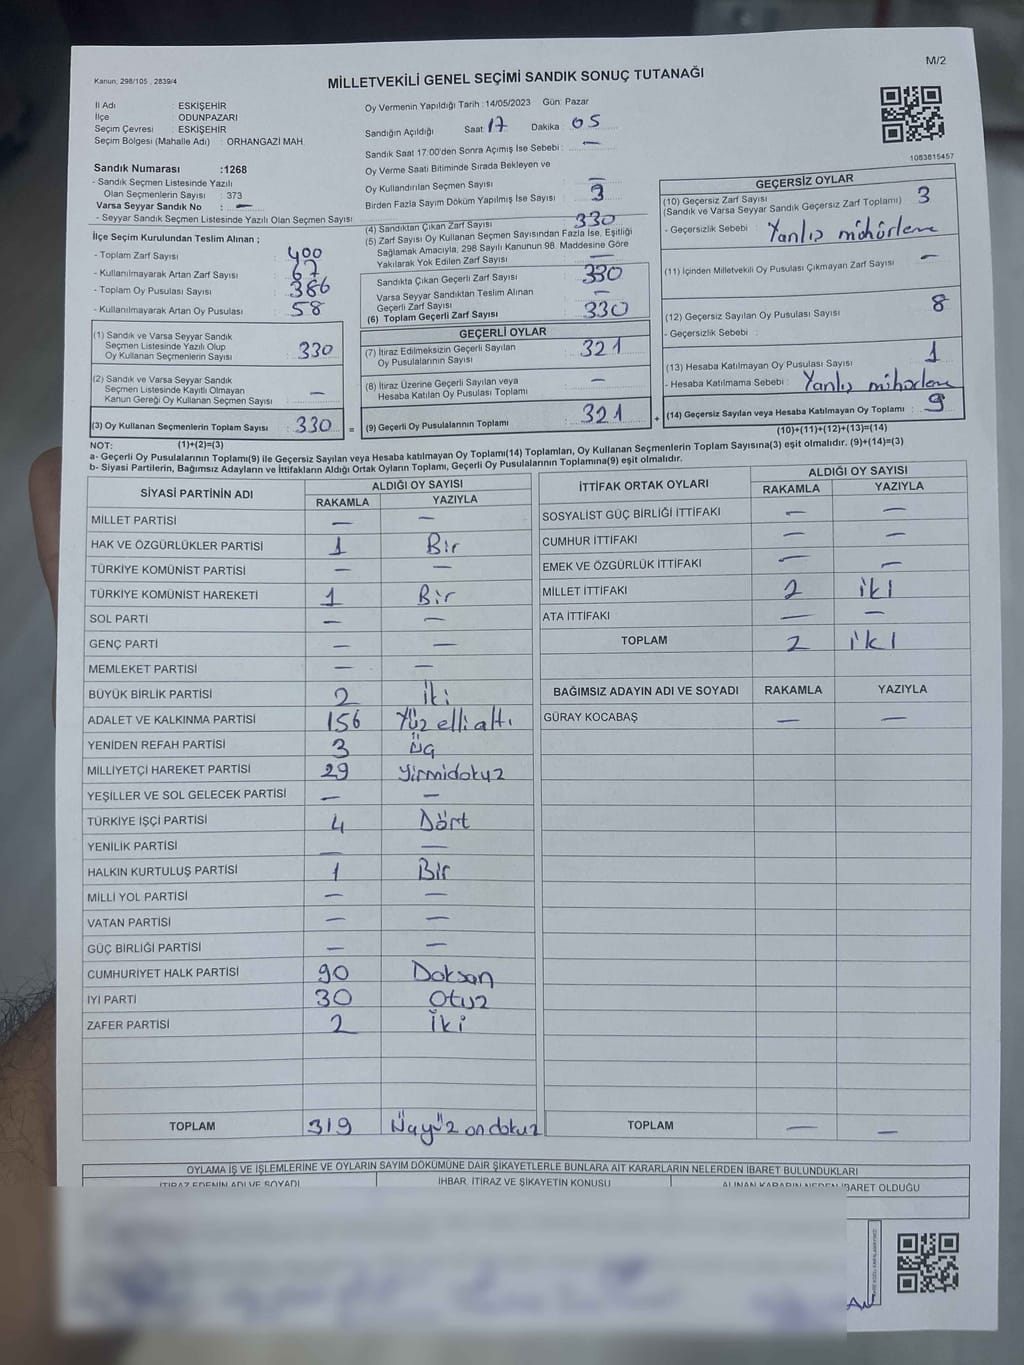 M/2
Kanun: 298/105 , 2839/4
MİLLETVEKİLİ GENEL SEÇİMİ SANDIK SONUÇ TUTANAĞI
İl Adı : ESKİŞEHİR
İlçe : ODUNPAZARI
Seçim Çevresi : ESKİŞEHİR
Seçim Bölgesi (Mahalle Adı) : ORHANGAZİ MAH.
Oy Vermenin Yapıldığı Tarih : 14/05/2023 Gün: Pazar
Sandığın Açıldığı Saat 17 Dakika 05
Sandık Saat 17:00'den Sonra Açımış İse Sebebi : —
Oy Verme Saati Bitiminde Sırada Bekleyen ve
Oy Kullandırılan Seçmen Sayısı : —
Birden Fazla Sayım Döküm Yapılmış İse Sayısı : 3
1083815457
Sandık Numarası :1268
- Sandık Seçmen Listesinde Yazılı
Olan Seçmenlerin Sayısı : 373
Varsa Seyyar Sandık No : —
- Seyyar Sandık Seçmen Listesinde Yazılı Olan Seçmen Sayısı
İlçe Seçim Kurulundan Teslim Alınan ;
- Toplam Zarf Sayısı : 400
- Kullanılmayarak Artan Zarf Sayısı : 67
- Toplam Oy Pusulası Sayısı : 386
- Kullanılmayarak Artan Oy Pusulası : 58
(1) Sandık ve Varsa Seyyar Sandık
Seçmen Listesinde Yazılı Olup
Oy Kullanan Seçmenlerin Sayısı : 330
(2) Sandık ve Varsa Seyyar Sandık
Seçmen Listesinde Kayıtlı Olmayan
Kanun Gereği Oy Kullanan Seçmen Sayısı : —
(3) Oy Kullanan Seçmenlerin Toplam Sayısı : 330 =
(4) Sandıktan Çıkan Zarf Sayısı : 330
(5) Zarf Sayısı Oy Kullanan Seçmen Sayısından Fazla İse, Eşitliği
Sağlamak Amacıyla, 298 Sayılı Kanunun 98. Maddesine Göre
Yakılarak Yok Edilen Zarf Sayısı : —
Sandıkta Çıkan Geçerli Zarf Sayısı : 330
Varsa Seyyar Sandıktan Teslim Alınan
Geçerli Zarf Sayısı : —
(6) Toplam Geçerli Zarf Sayısı : 330
GEÇERLİ OYLAR
(7) İtiraz Edilmeksizin Geçerli Sayılan
Oy Pusulalarının Sayısı : 321
(8) İtiraz Üzerine Geçerli Sayılan veya
Hesaba Katılan Oy Pusulası Toplamı : —
(9) Geçerli Oy Pusulalarının Toplamı : 321 +
GEÇERSİZ OYLAR
(10) Geçersiz Zarf Sayısı : 3
(Sandık ve Varsa Seyyar Sandık Geçersiz Zarf Toplamı)
- Geçersizlik Sebebi : Yanlış mühürleme
(11) İçinden Milletvekili Oy Pusulası Çıkmayan Zarf Sayısı : —
(12) Geçersiz Sayılan Oy Pusulası Sayısı : 8
- Geçersizlik Sebebi :
(13) Hesaba Katılmayan Oy Pusulası Sayısı : 1
- Hesaba Katılmama Sebebi : Yanlış mühürleme
(14) Geçersiz Sayılan veya Hesaba Katılmayan Oy Toplamı : 9
NOT: (1)+(2)=(3) (10)+(11)+(12)+(13)=(14)
a- Geçerli Oy Pusulalarının Toplamı(9) ile Geçersiz Sayılan veya Hesaba katılmayan Oy Toplamı(14) Toplamları, Oy Kullanan Seçmenlerin Toplam Sayısına(3) eşit olmalıdır. (9)+(14)=(3)
b- Siyasi Partilerin, Bağımsız Adayların ve İttifakların Aldığı Ortak Oyların Toplamı, Geçerli Oy Pusulalarının Toplamına(9) eşit olmalıdır.
SİYASİ PARTİNİN ADI ALDIĞI OY SAYISI
RAKAMLA YAZIYLA
MİLLET PARTİSİ — —
HAK VE ÖZGÜRLÜKLER PARTİSİ 1 Bir
TÜRKİYE KOMÜNİST PARTİSİ — —
TÜRKİYE KOMÜNİST HAREKETİ 1 Bir
SOL PARTİ — —
GENÇ PARTİ — —
MEMLEKET PARTİSİ — —
BÜYÜK BİRLİK PARTİSİ 2 İki
ADALET VE KALKINMA PARTİSİ 156 Yüz elli altı
YENİDEN REFAH PARTİSİ 3 Üç
MİLLİYETÇİ HAREKET PARTİSİ 29 Yirmidokuz
YEŞİLLER VE SOL GELECEK PARTİSİ — —
TÜRKİYE İŞÇİ PARTİSİ 4 Dört
YENİLİK PARTİSİ — —
HALKIN KURTULUŞ PARTİSİ 1 Bir
MİLLİ YOL PARTİSİ — —
VATAN PARTİSİ — —
GÜÇ BİRLİĞİ PARTİSİ — —
CUMHURİYET HALK PARTİSİ 90 Doksan
İYİ PARTİ 30 Otuz
ZAFER PARTİSİ 2 İki
TOPLAM 319 Üçyüz on dokuz
İTTİFAK ORTAK OYLARI ALDIĞI OY SAYISI
RAKAMLA YAZIYLA
SOSYALİST GÜÇ BİRLİĞİ İTTİFAKI — —
CUMHUR İTTİFAKI — —
EMEK VE ÖZGÜRLÜK İTTİFAKI — —
MİLLET İTTİFAKI 2 iki
ATA İTTİFAKI — —
TOPLAM 2 iki
BAĞIMSIZ ADAYIN ADI VE SOYADI RAKAMLA YAZIYLA
GÜRAY KOCABAŞ — —
TOPLAM — —
OYLAMA İŞ VE İŞLEMLERİNE VE OYLARIN SAYIM DÖKÜMÜNE DAİR ŞİKAYETLERLE BUNLARA AİT KARARLARIN NELERDEN İBARET BULUNDUKLARI
İTİRAZ EDENİN ADI VE SOYADI İHBAR, İTİRAZ VE ŞİKAYETİN KONUSU ALINAN KARARIN NEDEN İBARET OLDUĞU